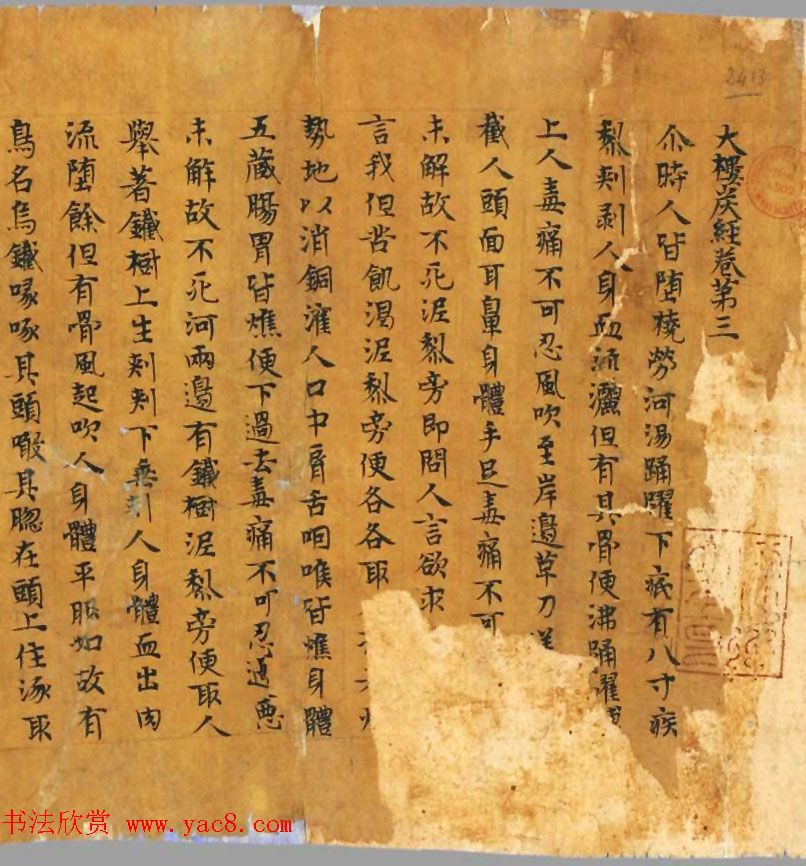 2413
大樓炭經卷第三
尒時人皆墮橈勞河湯踊躍下底有八寸疾
梨刾剥人身血流灑但有其骨便沸踊躍
上人毒痛不可忍風吹至岸邊草刀
截人頭面耳鼻身體手足毒痛不可
未解故不死泥梨旁即問人言欲求
言我但苦飢渴泥梨旁便各各取
勢地以消銅灌人口中脣舌咽喉皆燋身體
五藏腸胃皆燋便下過去毒痛不可忍過惡
未解故不死河兩邊有鐵樹泥梨旁便取人
舉著鐵樹上生刾刾下垂刾人身體血出肉
流墮餘但有骨風起吹人身體平服如故有
鳥名烏鐵喙啄其頭噉其腦在頭上住啄取
书法欣赏 www.yac8.com